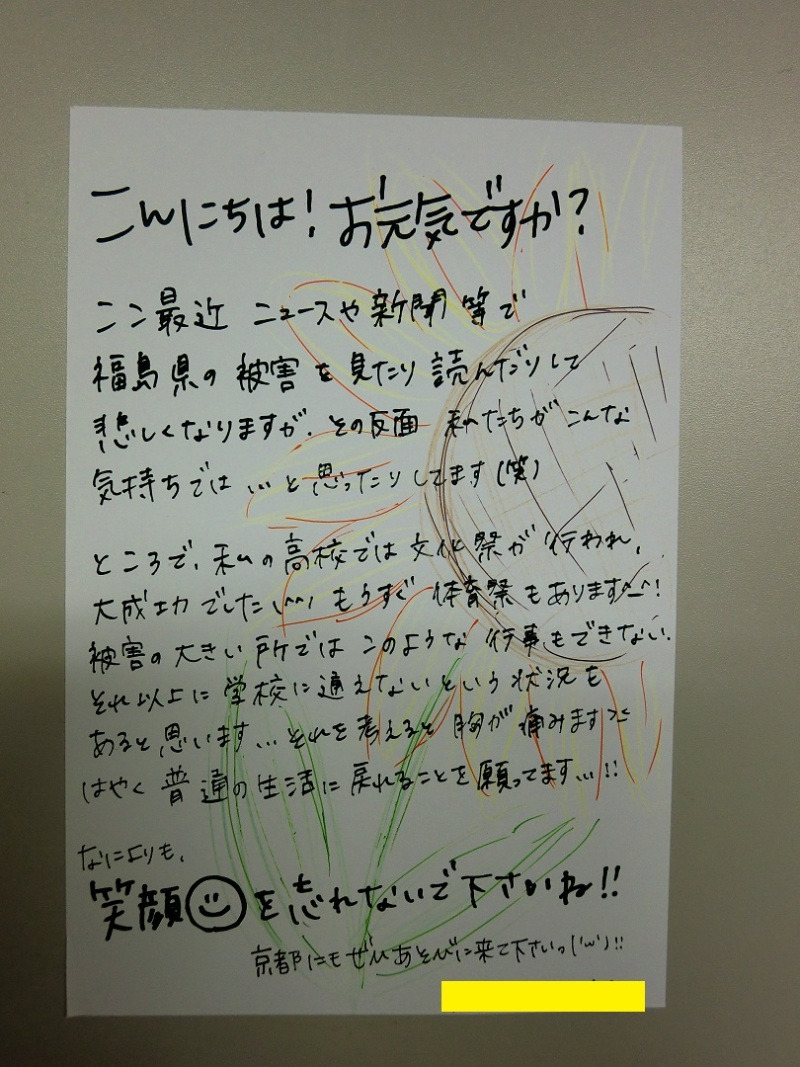 こんにちは!お元気ですか?
ここ最近 ニュースや新聞等で
福島県の被害を見たり読んだりして
悲しくなりますが、その反面 私たちがこんな
気持ちでは…と思ったりしてます(笑)
ところで、私の高校では文化祭が行われ、
大成功でした(^^) もうすぐ体育祭もあります^_^!
被害の大きい所ではこのような行事もできない、
それ以上に学校に通えないという状況も
あると思います…それを考えると胸が痛みます><
はやく普通の生活に戻れることを願ってます…!!
なによりも、
笑顔☺を忘れないで下さいね!!
京都にもぜひあそびに来て下さいっ('ω')!!